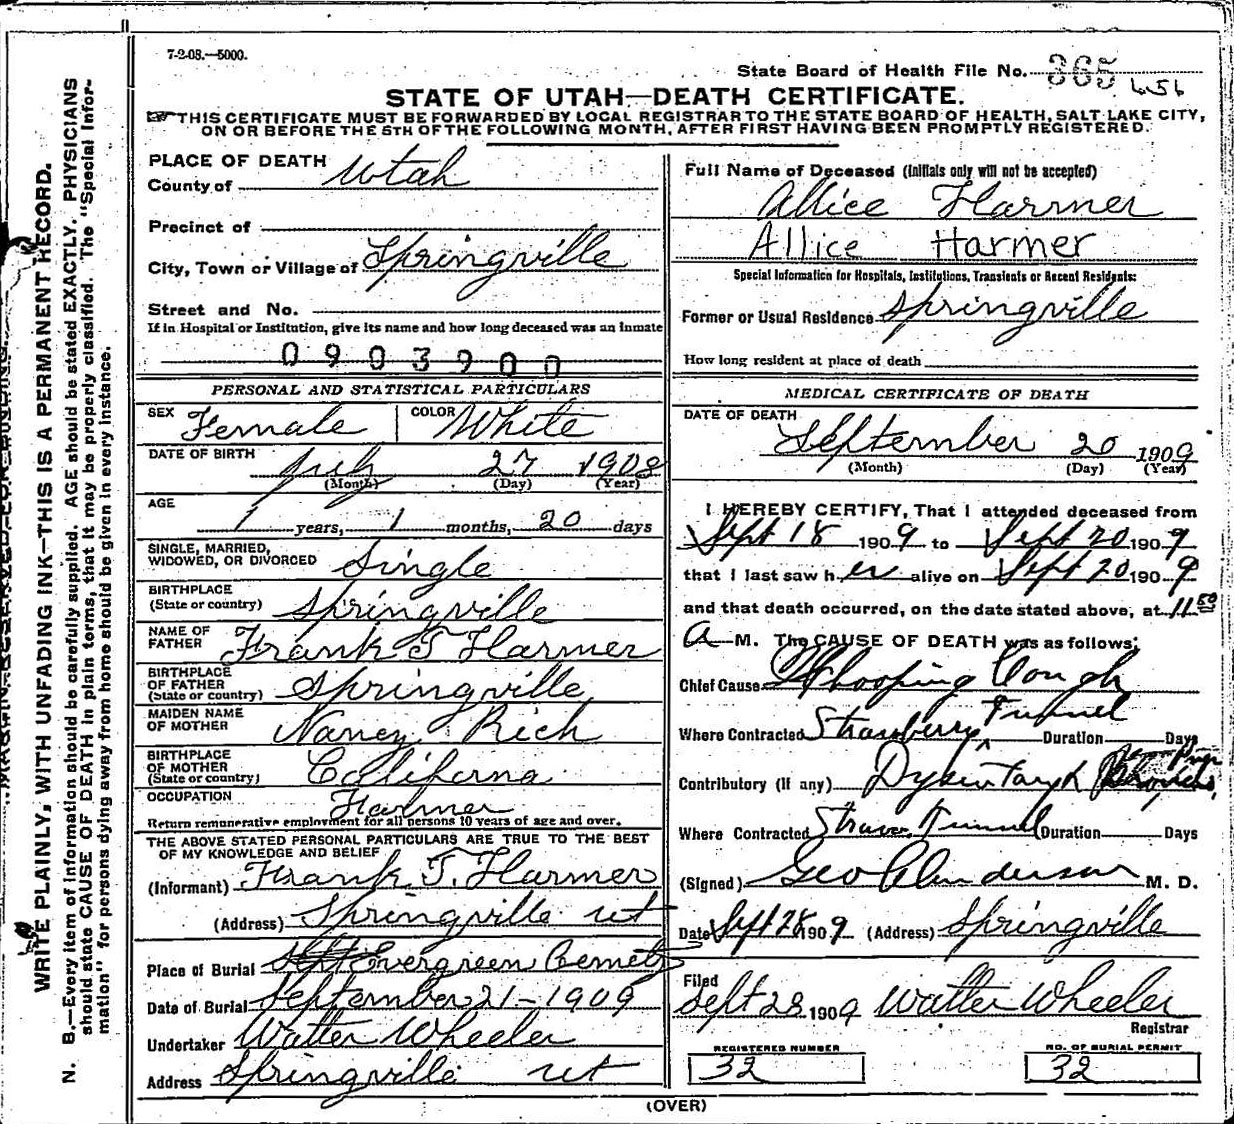 7-2-08.—5000.
State Board of Health File No. 365
456
STATE OF UTAH—DEATH CERTIFICATE.
THIS CERTIFICATE MUST BE FORWARDED BY LOCAL REGISTRAR TO THE STATE BOARD OF HEALTH, SALT LAKE CITY,
ON OR BEFORE THE 5TH OF THE FOLLOWING MONTH, AFTER FIRST HAVING BEEN PROMPTLY REGISTERED.
PLACE OF DEATH
County of Utah
Precinct of
City, Town or Village of Springville
Street and No.
If in Hospital or Institution, give its name and how long deceased was an inmate
0903900
PERSONAL AND STATISTICAL PARTICULARS
SEX Female COLOR White
DATE OF BIRTH
July 27 1908
(Month) (Day) (Year)
AGE
1 years, 1 months, 20 days
SINGLE, MARRIED,
WIDOWED, OR DIVORCED Single
BIRTHPLACE
(State or country) Springville
NAME OF
FATHER Frank T Harmer
BIRTHPLACE
OF FATHER
(State or country) Springville
MAIDEN NAME
OF MOTHER Nancy Rich
BIRTHPLACE
OF MOTHER
(State or country) Califerna
OCCUPATION Farmer
Return remunerative employment for all persons 10 years of age and over.
THE ABOVE STATED PERSONAL PARTICULARS ARE TRUE TO THE BEST
OF MY KNOWLEDGE AND BELIEF
(Informant) Frank T. Harmer
(Address) Springville ut
Place of Burial Evergreen Cemety
Date of Burial September 21-1909
Undertaker Walter Wheeler
Address Springville ut
Full Name of Deceased (Initials only will not be accepted)
Allice Harmer
Allice Harmer
Special Information for Hospitals, Institutions, Transients or Recent Residents:
Former or Usual Residence Springville
How long resident at place of death
MEDICAL CERTIFICATE OF DEATH
DATE OF DEATH
September 20 1909
(Month) (Day) (Year)
I HEREBY CERTIFY, That I attended deceased from
Sept 18 1909 to Sept 20 1909
that I last saw her alive on Sept 20 1909
and that death occurred, on the date stated above, at 11 50
A M. The CAUSE OF DEATH was as follows:
Chief Cause Whooping Cough
Where Contracted Strawberry Tunnel Duration Days
Contributory (if any) Dysentary
Where Contracted Straw. Tunnel Duration Days
(Signed) Geo Anderson M. D.
Date Sept 28 1909 (Address) Springville
Filed
Sept 28 1909 Walter Wheeler
Registrar
REGISTERED NUMBER
32
NO. OF BURIAL PERMIT
32
(OVER)
MARGIN RESERVED FOR BINDING
WRITE PLAINLY, WITH UNFADING INK—THIS IS A PERMANENT RECORD.
N. B.—Every item of information should be carefully supplied. AGE should be stated EXACTLY. PHYSICIANS
should state CAUSE OF DEATH in plain terms, that it may be properly classified. The "Special Infor-
mation" for persons dying away from home should be given in every instance.